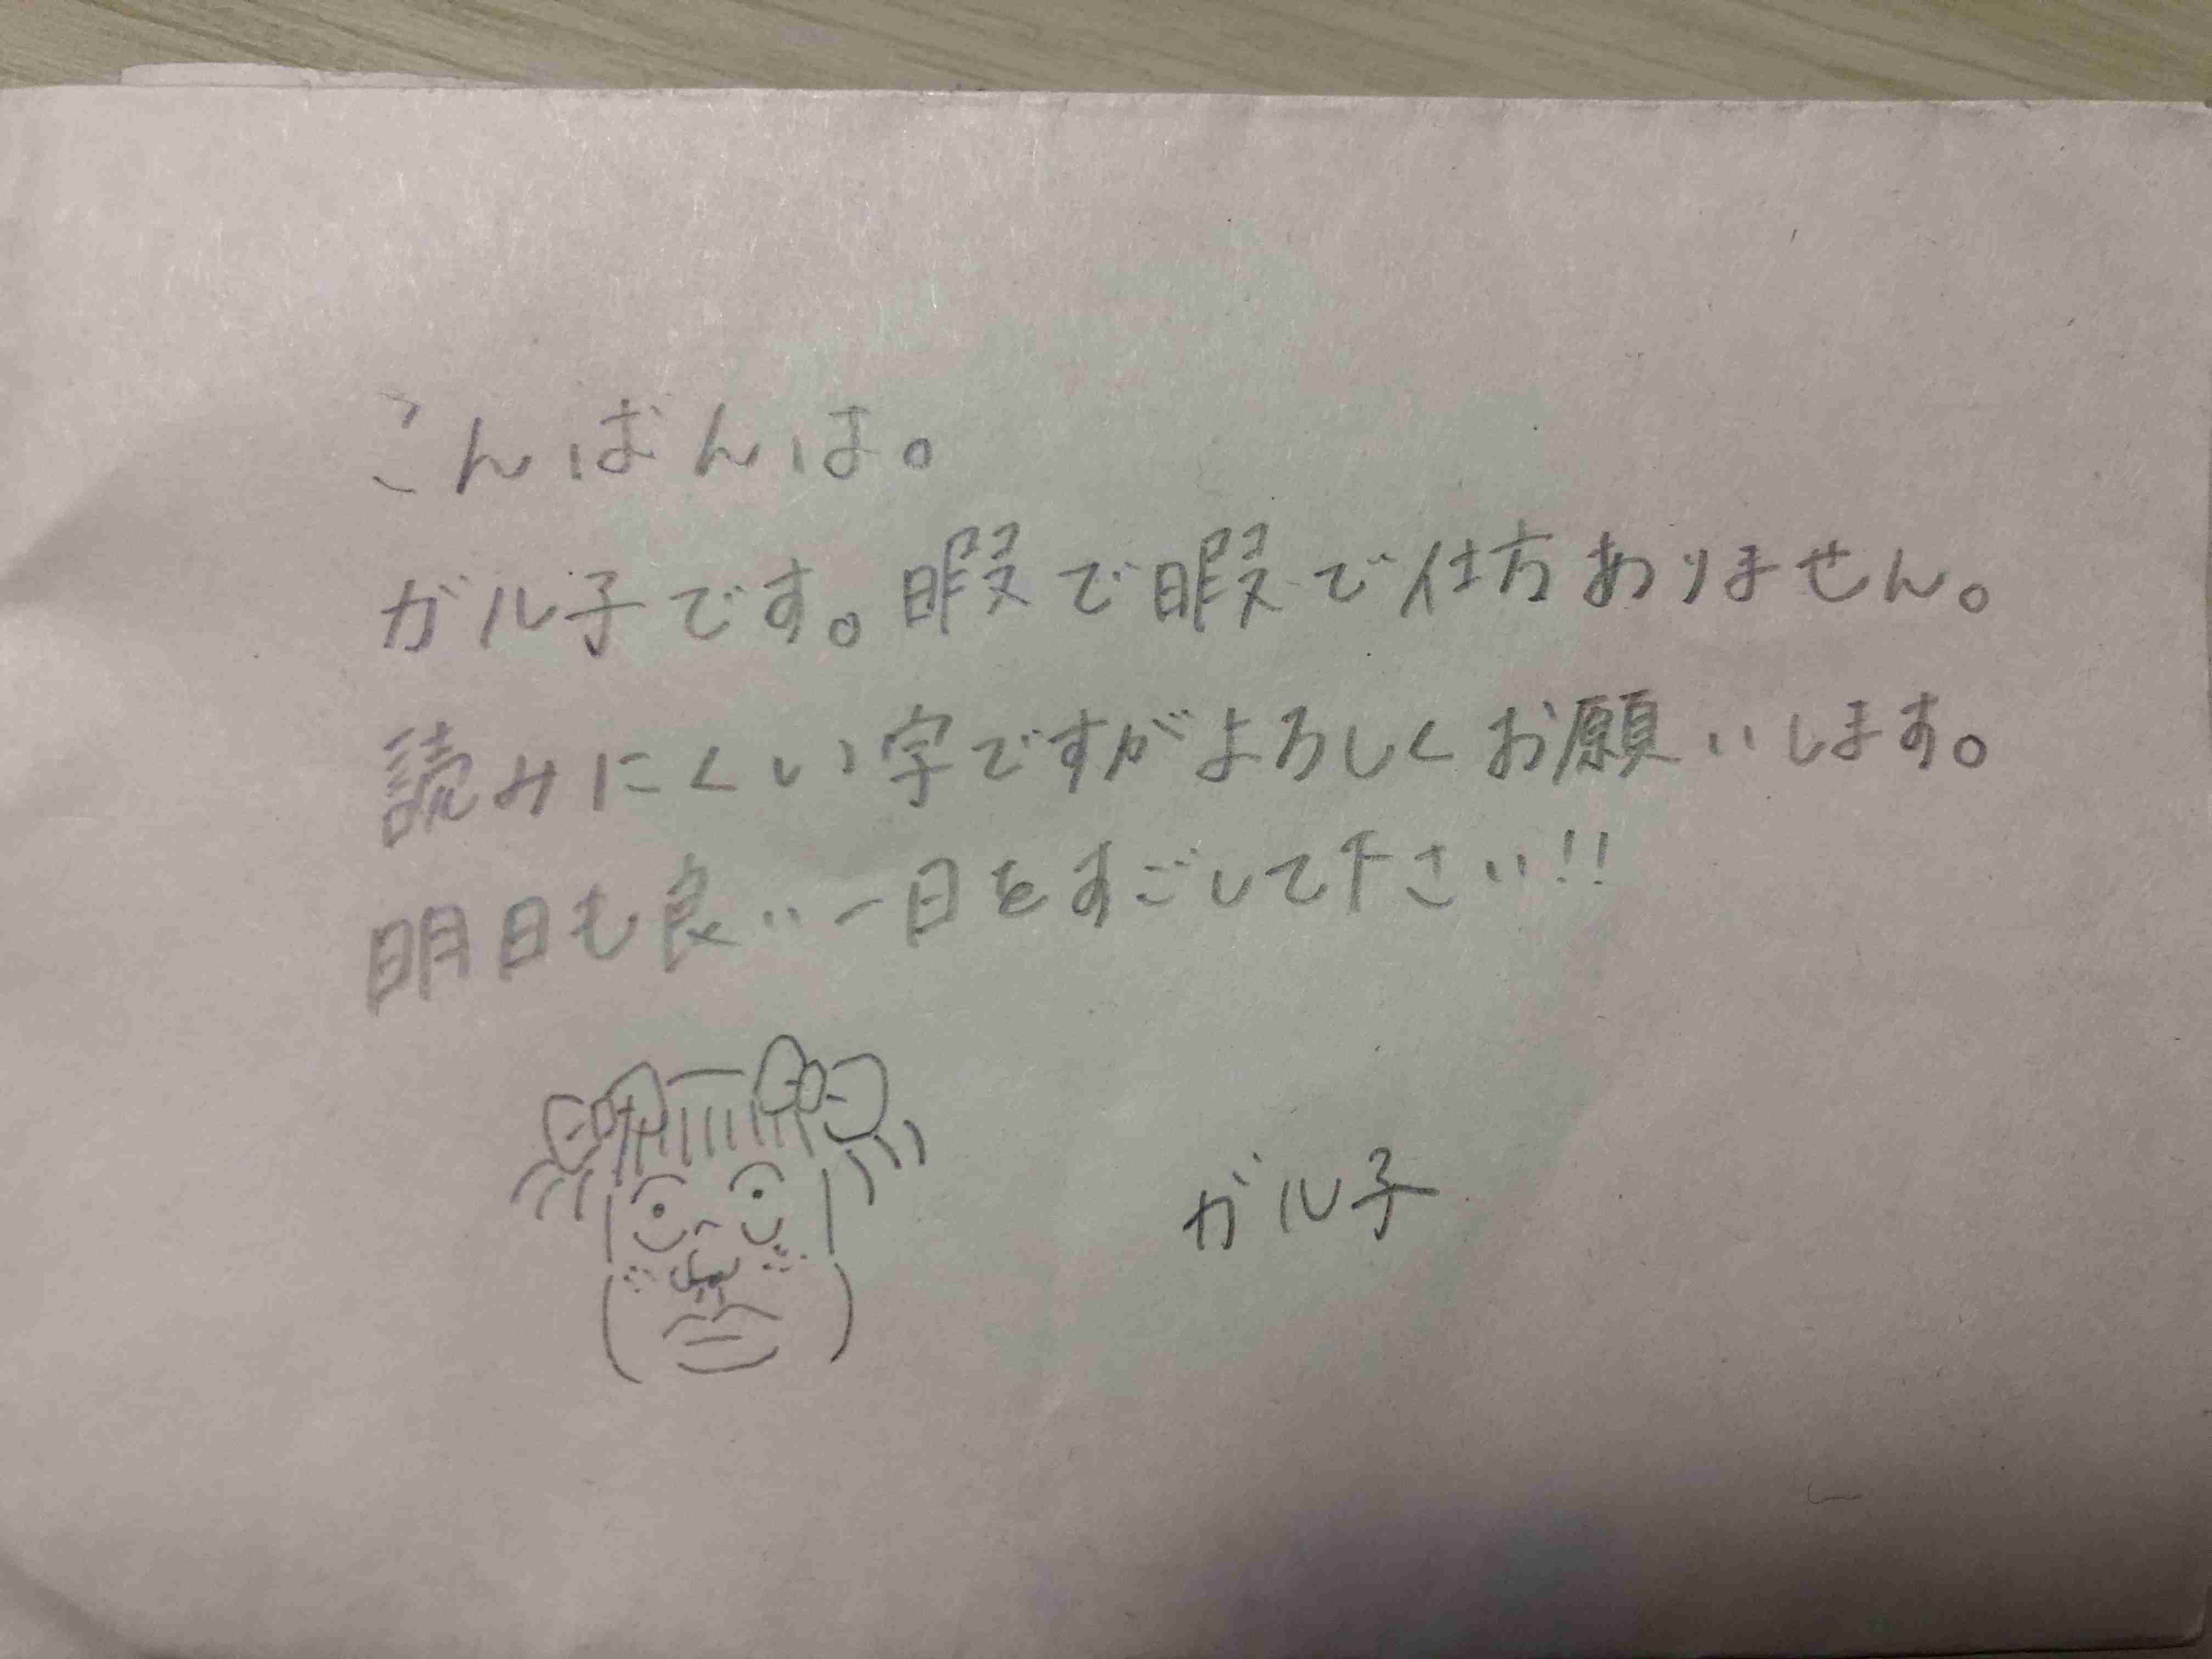 こんばんは。
ガル子です。暇で暇で仕方ありません。
読みにくい字ですがよろしくお願いします。
明日も良い一日をすごして下さい!!
ガル子